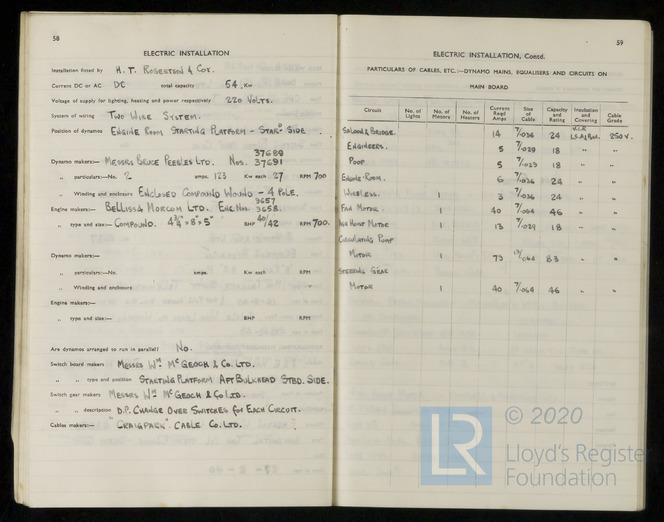 58
ELECTRIC INSTALLATION
Installation fitted by H. T. ROBERTSON & COY.
Current DC or AC DC total capacity 54. Kw
Voltage of supply for lighting, heating and power respectively 220 VOLTS.
System of wiring TWO WIRE SYSTEM.
Position of dynamos ENGINE ROOM STARTING PLATFORM - STARD SIDE
37689
Dynamo makers:— MESSRS BRUCE PEEBLES LTD. NOS. 37691
„ particulars:—No. 2 amps. 123 Kw each 27 RPM 700
„ Winding and enclosure ENCLOSED COMPOUND WOUND - 4 POLE.
3657
Engine makers:— BELLISS & MORCOM LTD. ENG. NOS. 3658.
„ type and size:— COMPOUND. 4¾" × 8" × 5" BHP 40/42 RPM 700.
Dynamo makers:—
„ particulars:—No. amps. Kw each RPM
„ Winding and enclosure
Engine makers:—
„ type and size:— BHP RPM
Are dynamos arranged to run in parallel? NO.
Switch board makers MESSRS WM MCGEOCH & CO. LTD.
„ „ type and position STARTING PLATFORM AFT BULKHEAD STBD. SIDE.
Switch gear makers MESSRS WM MCGEOCH & CO LTD.
„ „ description D.P. CHANGE OVER SWITCHES FOR EACH CIRCUIT.
Cables makers:— "CRAIGPARK" CABLE CO. LTD.
59
ELECTRIC INSTALLATION, Contd.
PARTICULARS OF CABLES, ETC.:—DYNAMO MAINS, EQUALISERS AND CIRCUITS ON
MAIN BOARD
Circuit No. of Lights No. of Motors No. of Heaters Current Reqd Amps Size of Cable Capacity and Rating Insulation and Covering Cable Grade
SALOON & BRIDGE. 14 7/036 24 V.I.R. L.S.A. & B. 250 V.
ENGINEERS. 5 7/029 18 „ „
POOP 5 7/029 18 „ „
ENGINE-ROOM. 6 7/036 24 „ „
WIRELESS. 1 3 7/036 24 „ „
FAN MOTOR. 1 40 7/064 46 „ „
ASH HOIST MOTOR 1 13 7/029 18 „ „
CIRCULATING PUMP
MOTOR 1 73 19/064 83 „ „
STEERING GEAR
MOTOR 1 40 7/064 46 „ „
LR © 2020
Lloyd's Register
Foundation